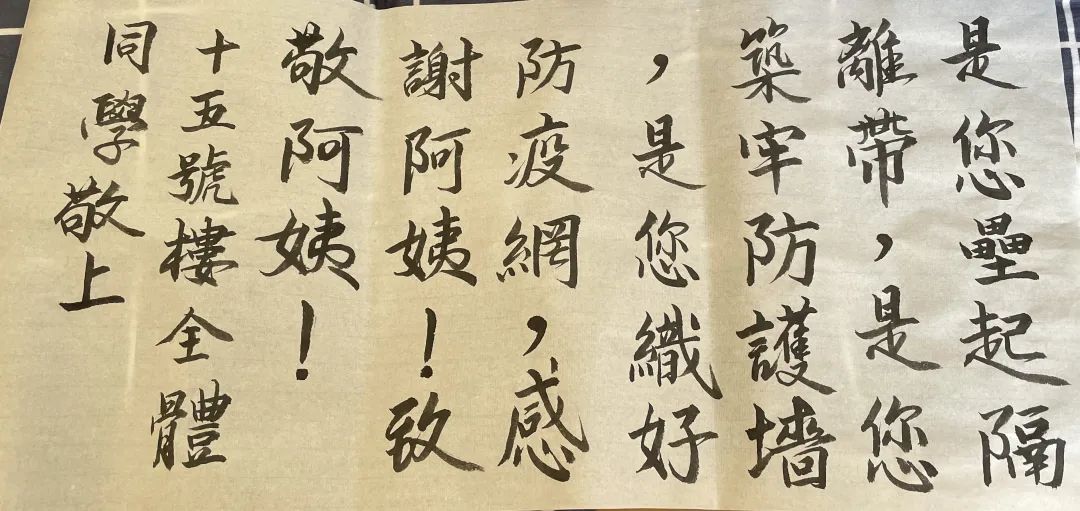 是您壘起隔
離帶，是您
築牢防護墻
，是您織好
防疫網，感
謝阿姨！致
敬阿姨！
十五號樓全體
同學敬上